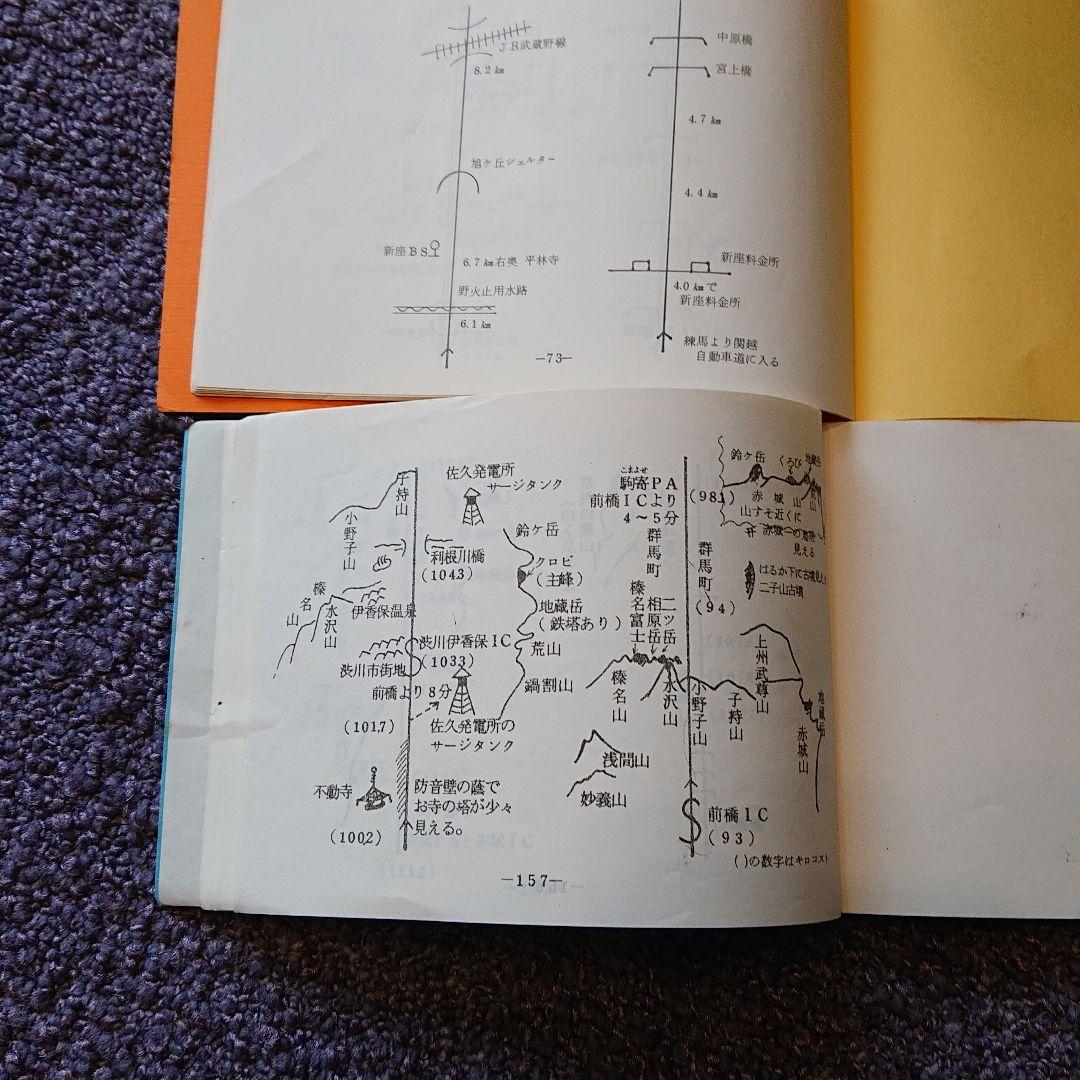 JR武蔵野線
8.2㎞
旭ケ丘シェルター
新座BS
6.7㎞右奥 平林寺
野火止用水路
6.1㎞
中原橋
宮上橋
4.7㎞
4.4㎞
新座料金所
4.0㎞で
新座料金所
練馬より関越
自動車道に入る
—73—
子持山
小野子山
佐久発電所
サージタンク
利根川橋
(104.3)
鈴ケ岳
クロビ
(主峰)
地蔵岳
(鉄塔あり)
荒山
鍋割山
榛名山
水沢山
伊香保温泉
渋川伊香保IC
(103.3)
渋川市街地
前橋より8分
(101.7)
佐久発電所の
サージタンク
不動寺
(100.2)
防音壁の蔭で
お寺の塔が少々
見える。
こまよせ
駒寄PA
前橋ICより
4～5分
群馬町
(98.1)
鈴ケ岳
くろび
地蔵岳
荒山
赤城山
山すそ近くに
見える
群馬町
(94)
はるか下に古墳見え
二子山古墳
榛名富士
相原岳
二ツ岳
榛名山
水沢山
小野子山
子持山
上州武尊山
地蔵岳
赤城山
浅間山
妙義山
前橋IC
(93)
( )の数字はキロコスト
—157—